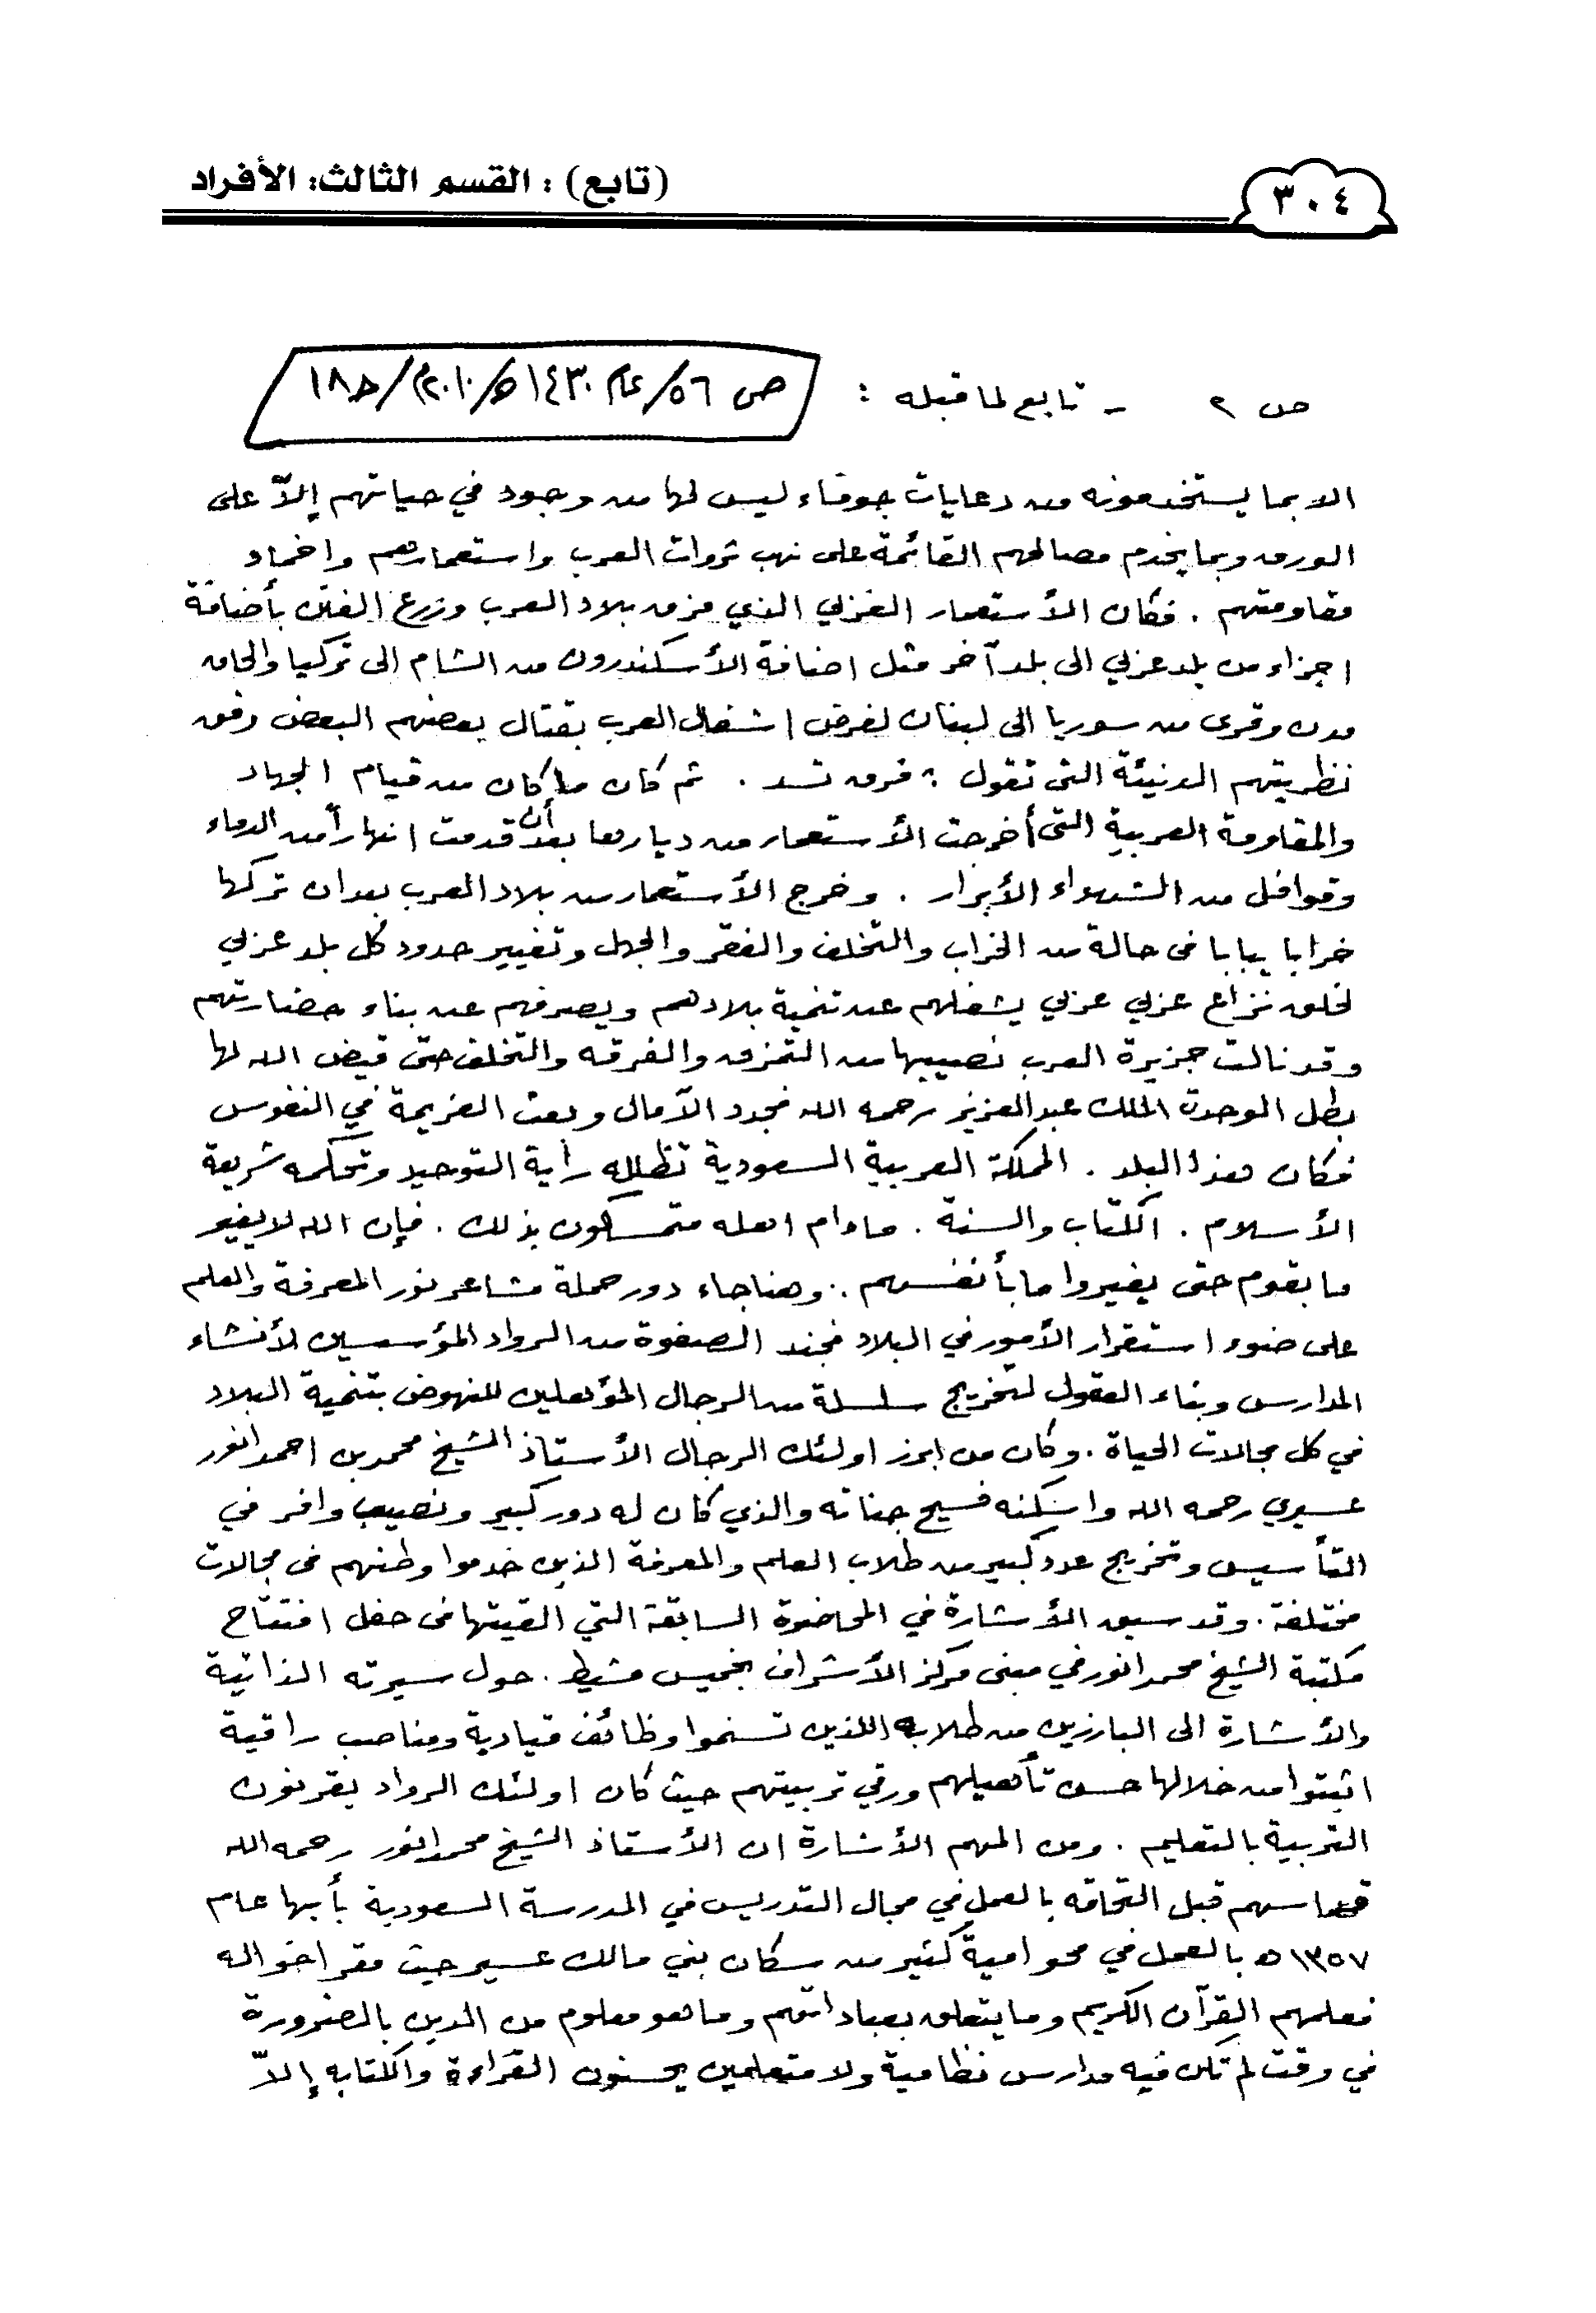 (تابع) : القسم الثالث: الأفراد
٣٠٤
ص ٢ - تابع لما قبله :
ص ٥٦/ عام ١٤٣٠هـ/٢٠١٠م/
الا بما يستخدمونه من دعايات جوفاء ليس لها من وجود في حياتهم إلاّ على
الورق وبما يخدم مصالحهم القائمة على نهب ثروات العرب واستعمارهم واخماد
مقاومتهم . فكان الأستعمار الغربي الذي مزق بلاد العرب وزرع الفتن بأضافة
اجزاء من بلد عربي الى بلد آخر مثل اضافة الأسكندرون من الشام الى تركيا والحاق
مدن وقرى من سوريا الى لبنان لغرض اشغال العرب بقتال بعضهم البعض وفق
نظريتهم الدنيئة التي تقول : فرق تسد . ثم كان ما كان من قيام الجهاد
والمقاومة العربية التي أخرجت الأستعمار من ديارها بعد أن قدمت انهاراً من الدماء
وقوافل من الشهداء الأبرار . وخرج الأستعمار من بلاد العرب بعد ان تركها
خرابا يبابا في حالة من الخراب والتخلف والفقر والجهل وتغيير حدود كل بلد عربي
لخلق نزاع عربي عربي يشغلهم عن تنمية بلادهم ويصرفهم عن بناء حضارتهم
وقد نالت جزيرة العرب نصيبها من التمزق والفرقه والتخلف حتى قيض الله لها
بطل الوحدة الملك عبدالعزيز رحمه الله فجدد الآمال وبعث العزيمة في النفوس
فكان هذا البلد . المملكة العربية السعودية تظلله راية التوحيد وتحكمه شريعة
الأسلام . الكتاب والسنة . مادام اهله متمسكون بذلك . فإن الله لا يغير
ما بقوم حتى يغيروا ما بأنفسهم . وهنا جاء دور حملة مشاعر نور المعرفة والعلم
على ضوء استقرار الأمور في البلاد فجند الصفوة من الرواد المؤسسين لأنشاء
المدارس وبناء العقول لتخريج سلسلة من الرجال المؤهلين للنهوض بتنمية البلاد
في كل مجالات الحياة . وكان من ابرز اولئك الرجال الأستاذ الشيخ محمد بن احمد انور
عسيري رحمه الله واسكنه فسيح جناته والذي كان له دور كبير ونصيب وافر في
التأسيس وتخريج عدد كبير من طلاب العلم والمعرفة الذين خدموا وطنهم في مجالات
مختلفة . وقد سبق الأشارة في المحاضرة السابقة التي القيتها في حفل افتتاح
مكتبة الشيخ محمد انور في مبنى مركز الأشراف بخميس مشيط . حول سيرته الذاتية
والأشارة الى البارزين من طلابه اللذين تسنموا وظائف قيادية ومناصب راقية
اثبتوا من خلالها حسن تأهيلهم ورقي تربيتهم حيث كان اولئك الرواد يقرنون
التربية بالتعليم . ومن المهم الأشارة ان الأستاذ الشيخ محمد انور رحمه الله
قد اسهم قبل التحاقه بالعمل في مجال التدريس في المدرسة السعودية بأبها عام
١٣٥٧هـ بالعمل في محو امية كثير من سكان بني مالك عسير حيث مقر اخواله
فعلمهم القرآن الكريم وما يتعلق بعباداتهم وما هو معلوم من الدين بالضرورة
في وقت لم تكن فيه مدارس نظامية ولا متعلمين يحسنون القراءة والكتابه إلاّ